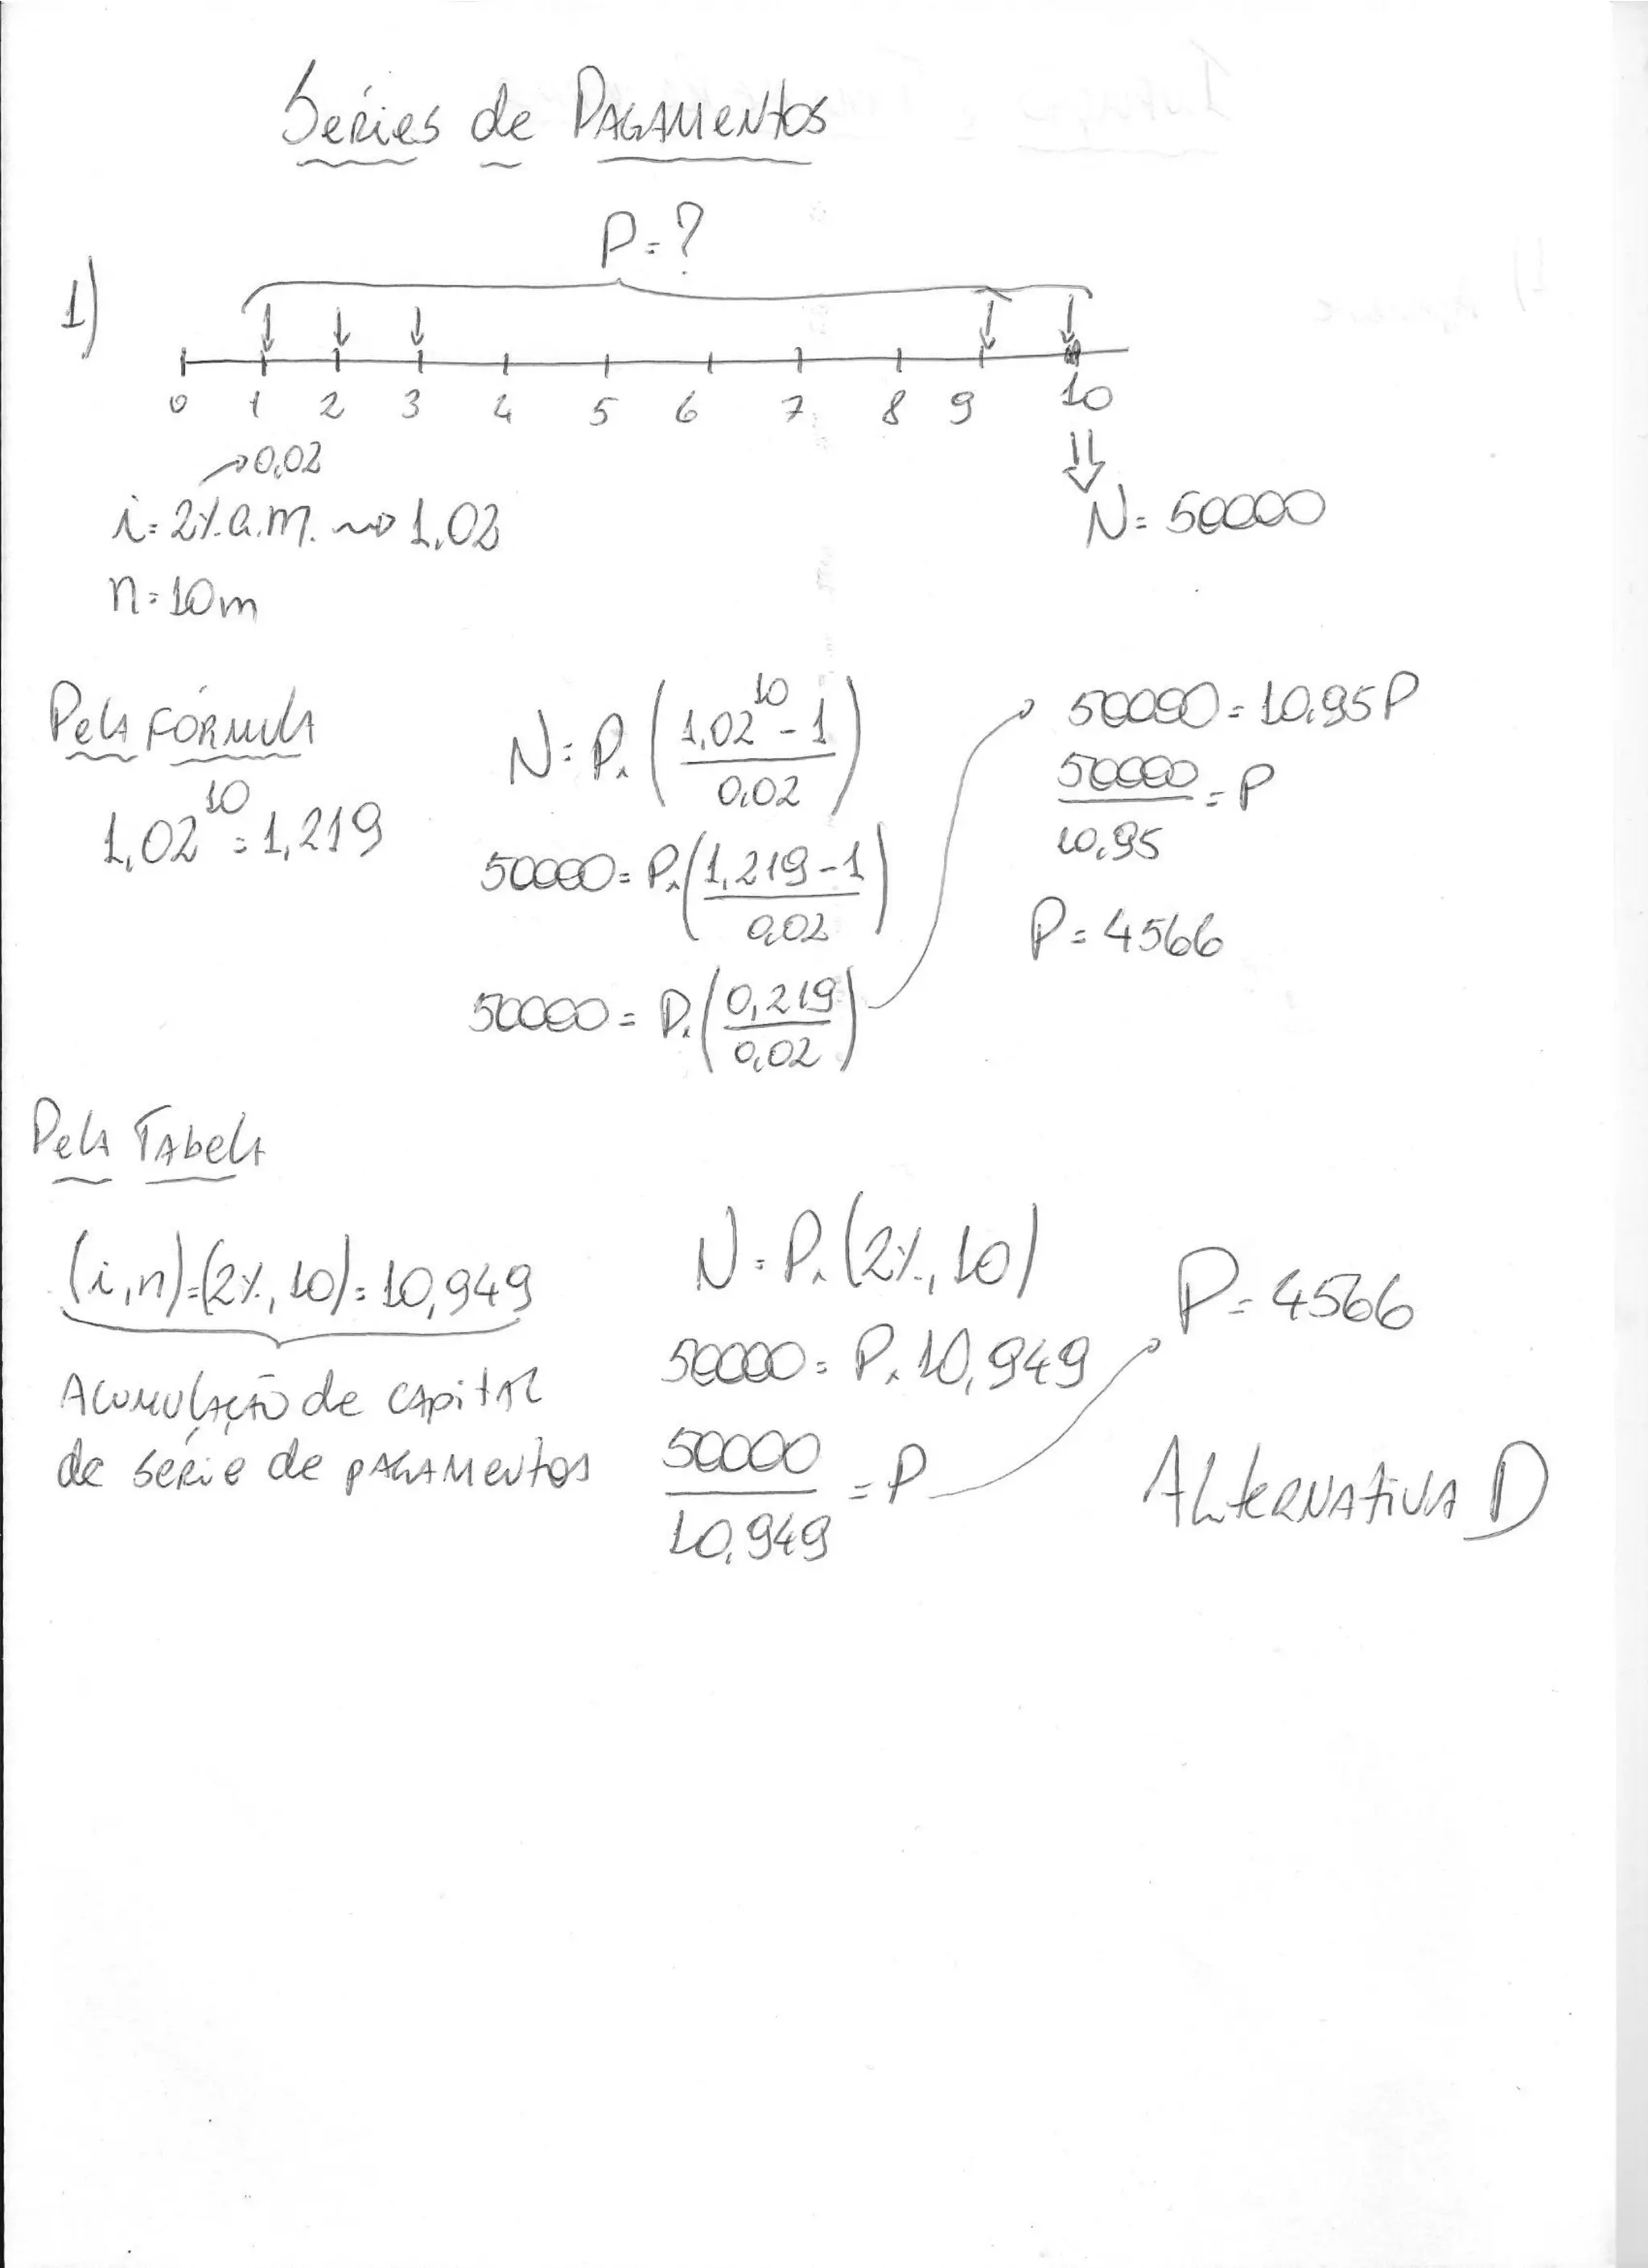 Séries de Pagamentos
P=?
1)
0 1 2 3 4 5 6 7 8 9 10
→0,02
i=2%a.m. ~> 1,02
n=10m
N=50000
Pela fórmula
1,02^10=1,219
N=P.(1,02^10-1/0,02)
50000=P.(1,219-1/0,02)
50000=P.(0,219/0,02)
50000=10,95P
50000/10,95=P
P=4566
Pela Tabela
(i,n)=(2%,10)=10,949
Acumulação de capital
de série de pagamentos
N=P.(2%,10)
50000=P.10,949
50000/10,949=P
P=4566
Alternativa D